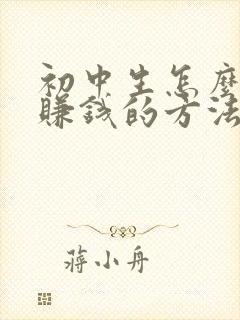 初中生怎麼
賺錢的方法
蔣小舟